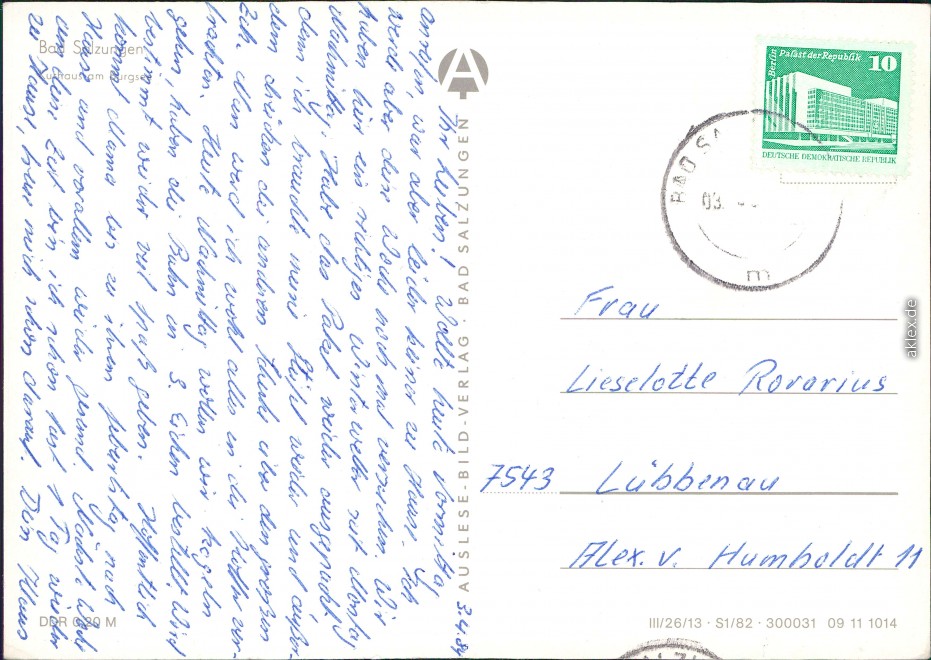 Bad Salzungen
Kurhaus am Burgsee
Ihr Lieben! Wollte heute Vormittag
anrufen, war aber leider keiner zu Hause. Ich
werde aber diese Woche noch mal versuchen. Wir
haben hier ein richtiges Winterwetter seit Montag
Nachmittag. Habe das Paket wieder ausgepackt
denn ich brauche meine Stiefel wieder und außer-
dem kriechen die anderen Hunde über den großen
brachten. Heute Nachmittag wollen wir kegeln
gehen, haben die Bahn in 3 Eichen bestellt. Wird
bestimmt wieder viel Spaß geben. Hoffentlich
kommt Mama bis zu ihrem Geburtstag nach
Haus und vorallem wieder gesund. Nächste Woche
um diese Zeit bin ich schon fast 1 Tag wieder
zu Hause, freue mich schon darauf. Dein Klaus
3.4.84
DDR 0,20 M
A
AUSLESE-BILD-VERLAG · BAD SALZUNGEN
Berlin Palast der Republik 10
DEUTSCHE DEMOKRATISCHE REPUBLIK
BAD SA
03.
m
Frau
Lieselotte Rorarius
7543 Lübbenau
Alex. v. Humboldt 11
III/26/13 · S1/82 · 300031 09 11 1014
aklex.de